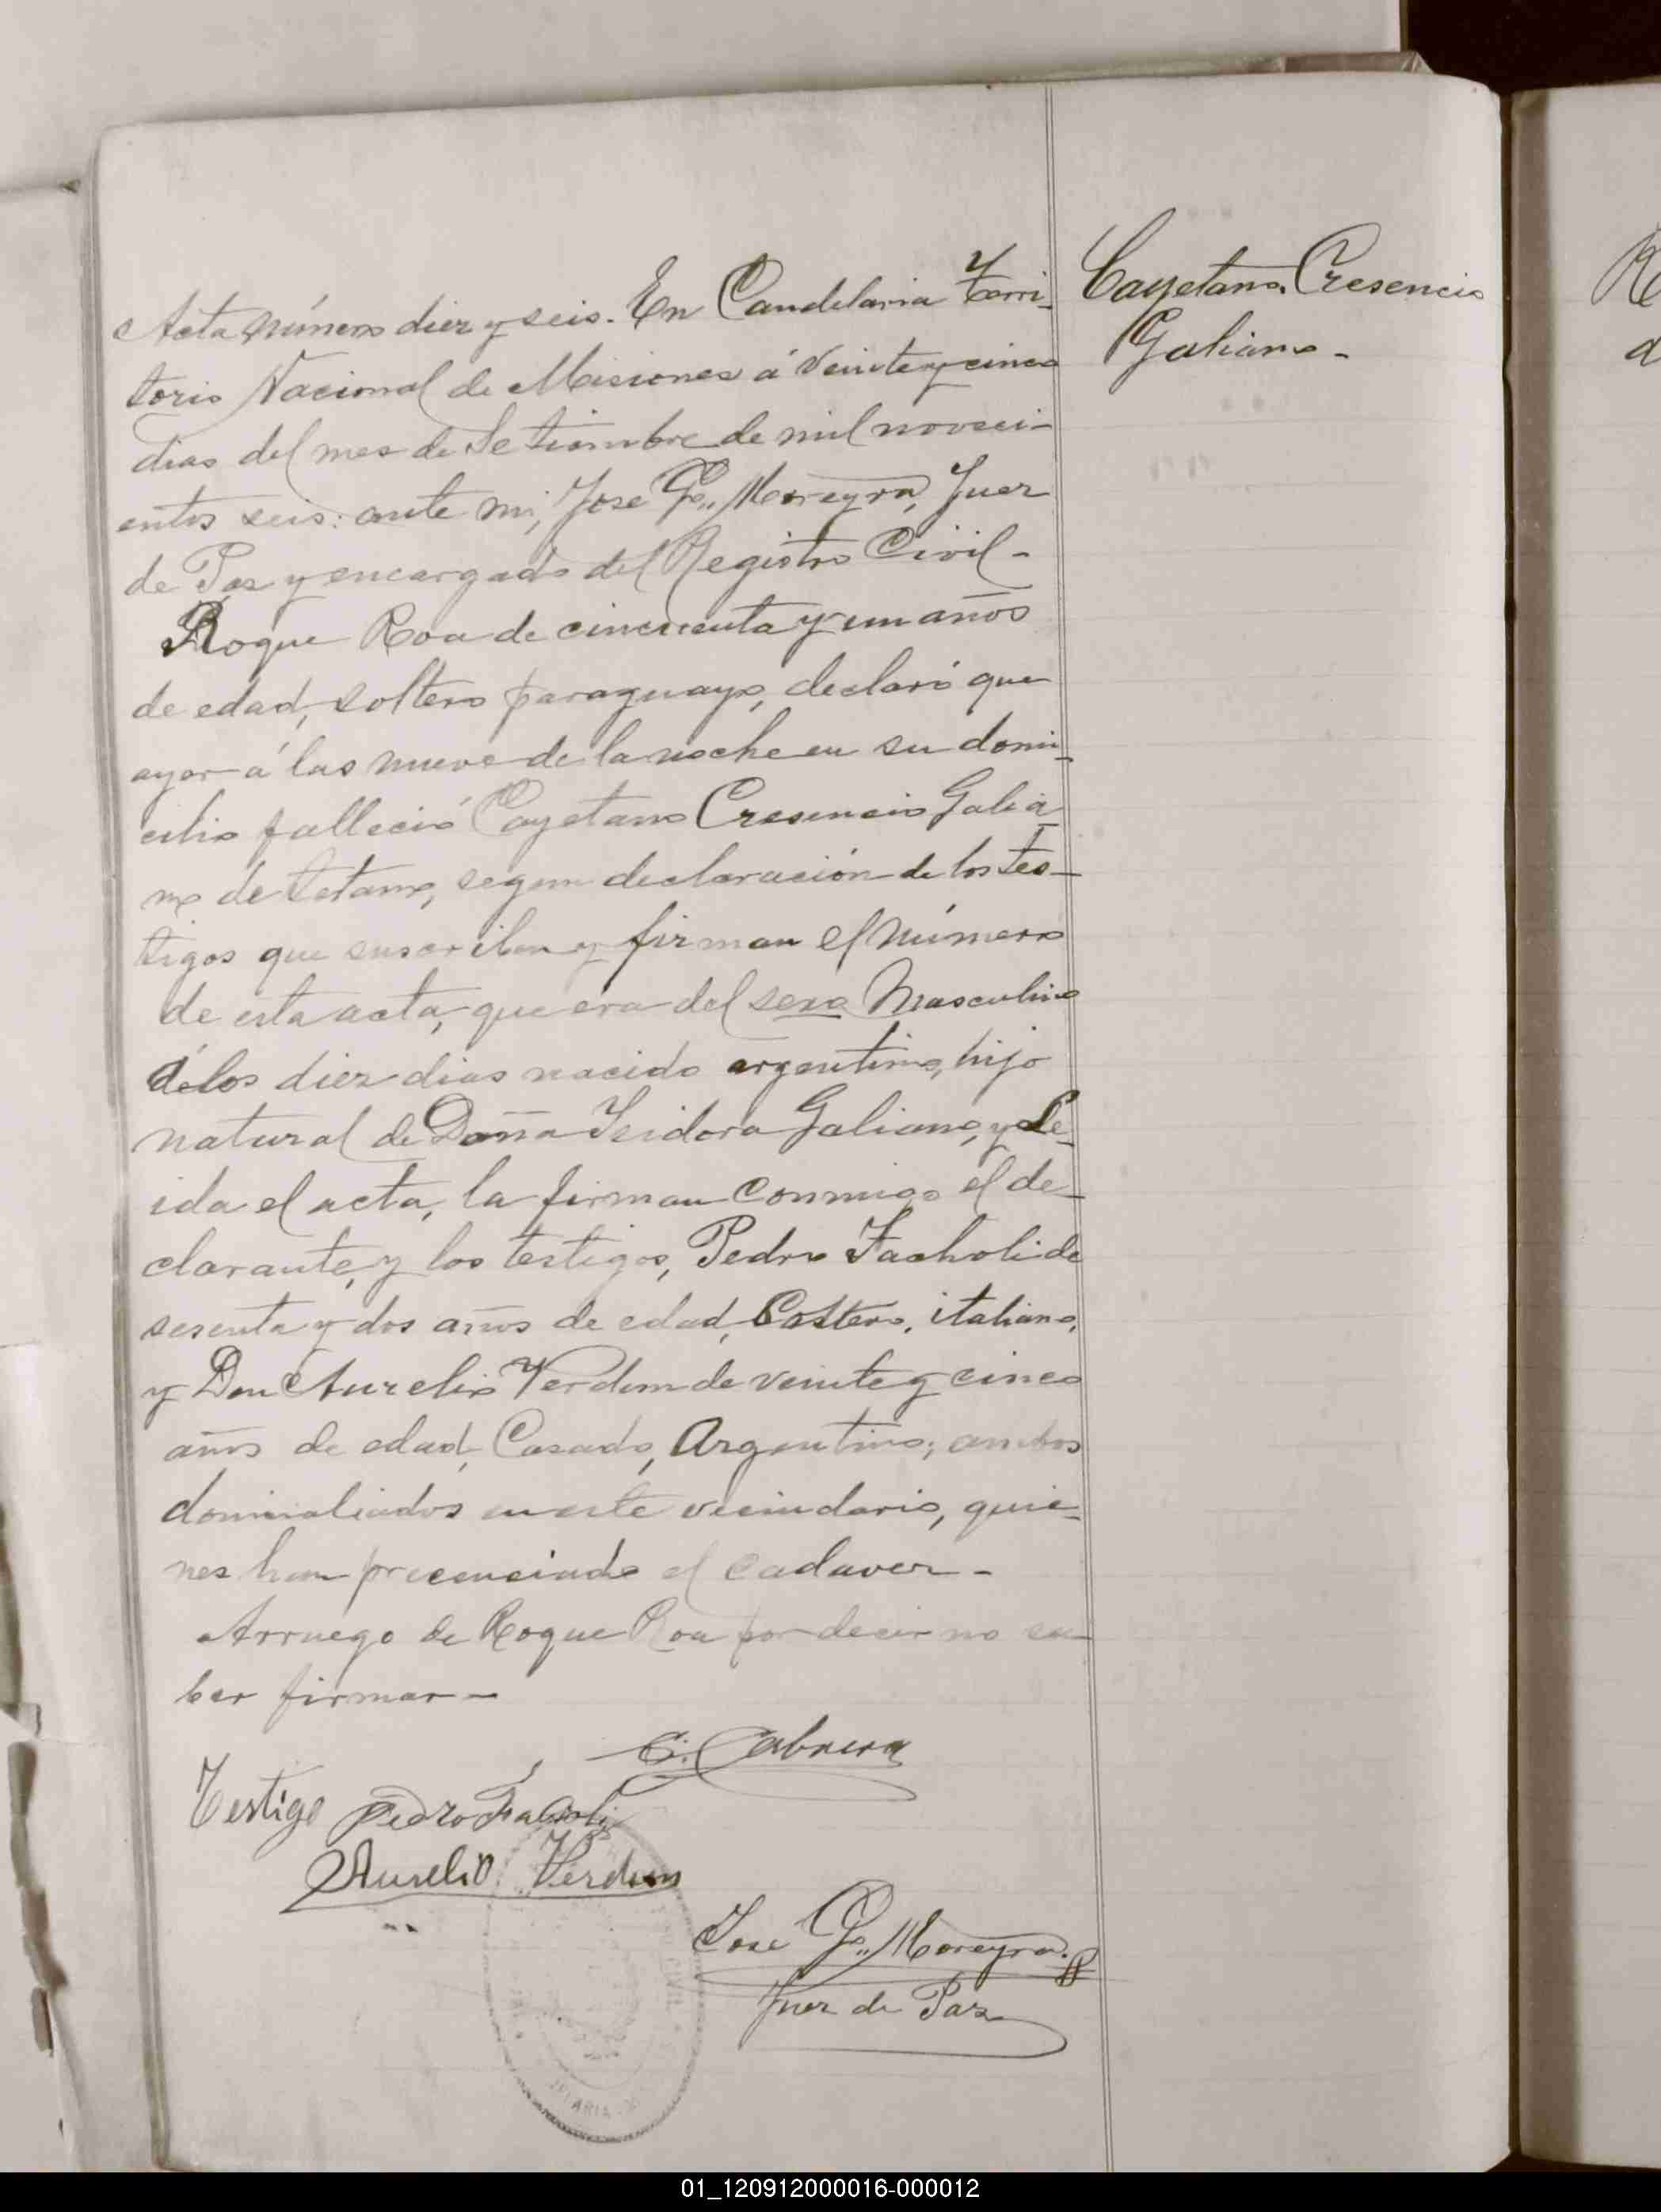 Cayetano Cresencio
Galiano -
Acta número diez y seis. En Candelaria Terri-
torio Nacional de Misiones á veinte y cinco
dias del mes de Setiembre de mil noveci-
entos seis: ante mi, Jose G. Moreyra, Juez
de Paz y encargado del Registro Civil -
Roque Roa de cincuenta y un años
de edad, soltero paraguayo, declaró que
ayer á las nueve de la noche en su domi-
cilio falleció Cayetano Cresencio Galia-
no de tetano, segun declaración de los tes-
tigos que suscriben y firman el número
de esta acta, que era del sexo Masculino
de los diez dias nacido argentino, hijo
natural de Doña Isidora Galiano, y Le-
ida el acta, la firman conmigo el de-
clarante, y los testigos, Pedro Facholi de
sesenta y dos años de edad, soltero, italiano,
y Don Aurelio Verdun de veinte y cinco
años de edad, Casado, Argentino; ambos
domicaliados en este vecindario, quie-
nes han precenciado el cadaver -
Arruego de Roque Roa por decir no sa-
ber firmar -
C. Cabrera
Testigo Pedro
Aurelio Verdun
Jose G. Moreyra
Juez de Paz
01_120912000016-000012